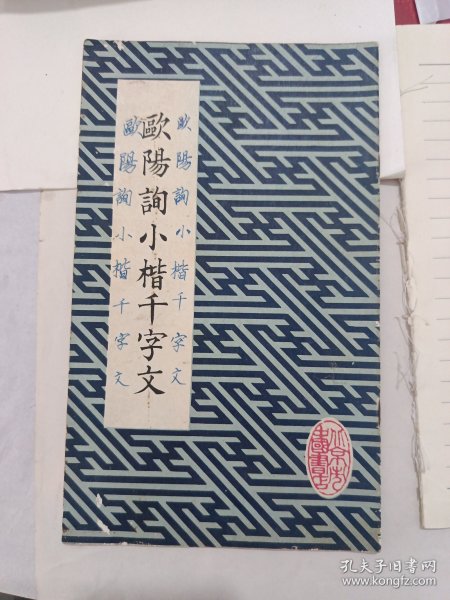 歐陽詢小楷千字文
歐陽詢小楷千字文
歐陽詢小楷千字文
北京市
中國書店
孔夫子旧书网
www.kongfz.com